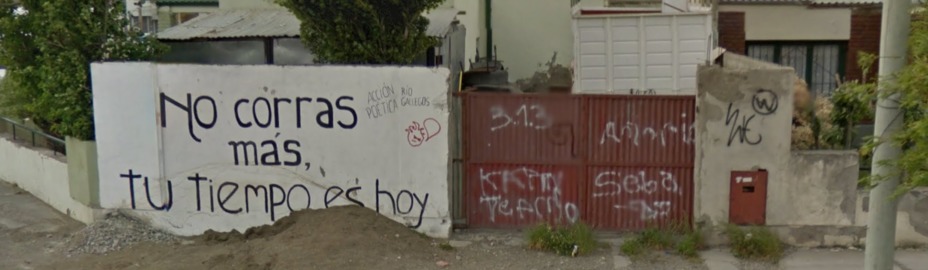 No corras
más,
tu tiempo es hoy
ACCIÓN
POÉTICA
RÍO
GALLEGOS
3.13
Seba
W